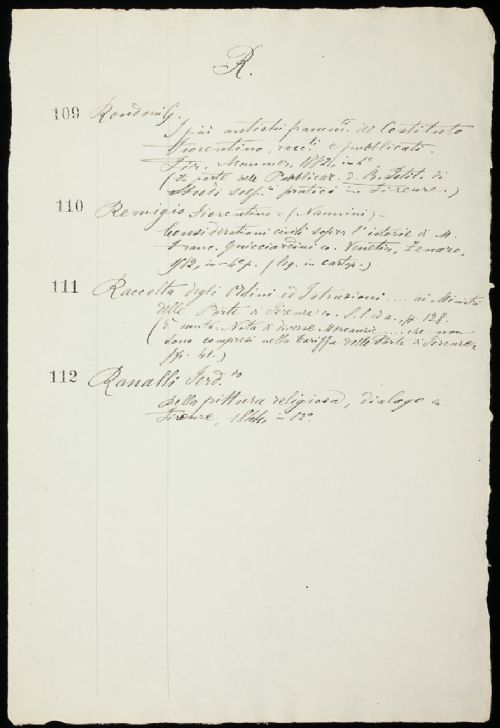 R.
109 Rondoni G.
I più antichi framm.ti del Costituto
Fiorentino, racc.ti e pubblicati.
Fir. Monnier, 1882, in 4°
(Fa parte delle Pubblicaz. d. R. Istit. di
Studi sup.ri pratici in Firenze.)
110 Remigio Fiorentino = (Nannini) =
Considerationi civili sopra l'istorie di M.
Franc. Guicciardini ec. Venetia, Zenaro,
in-4° p. (leg. in cartap.)
111 Raccolta degli Ordini ed Istruzioni .... ai Ministri
delle Porte di Firenze ec. S. l. ed a., pp. 128.
(È unita: Nota di diverse Mercanzie .... che non
sono compresi nella tariffa delle Porte di Firenze
pp. 41.)
112 Ranalli Ferd.do
Della pittura religiosa, dialogo ec.
Firenze, 1844, in 12°.